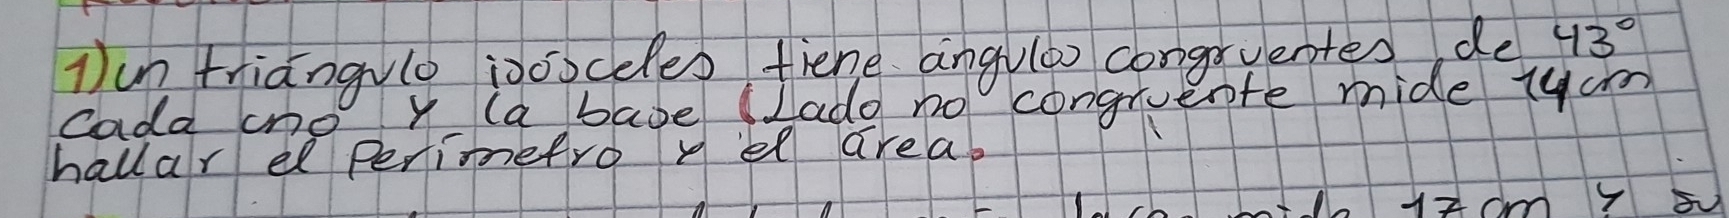 1) un triángulo isósceles tiene ángulos congruentes de 43°
cada uno y la base (Lado no congruente mide 14cm
hallar el Perímetro y el área.
mide 17 cm y su